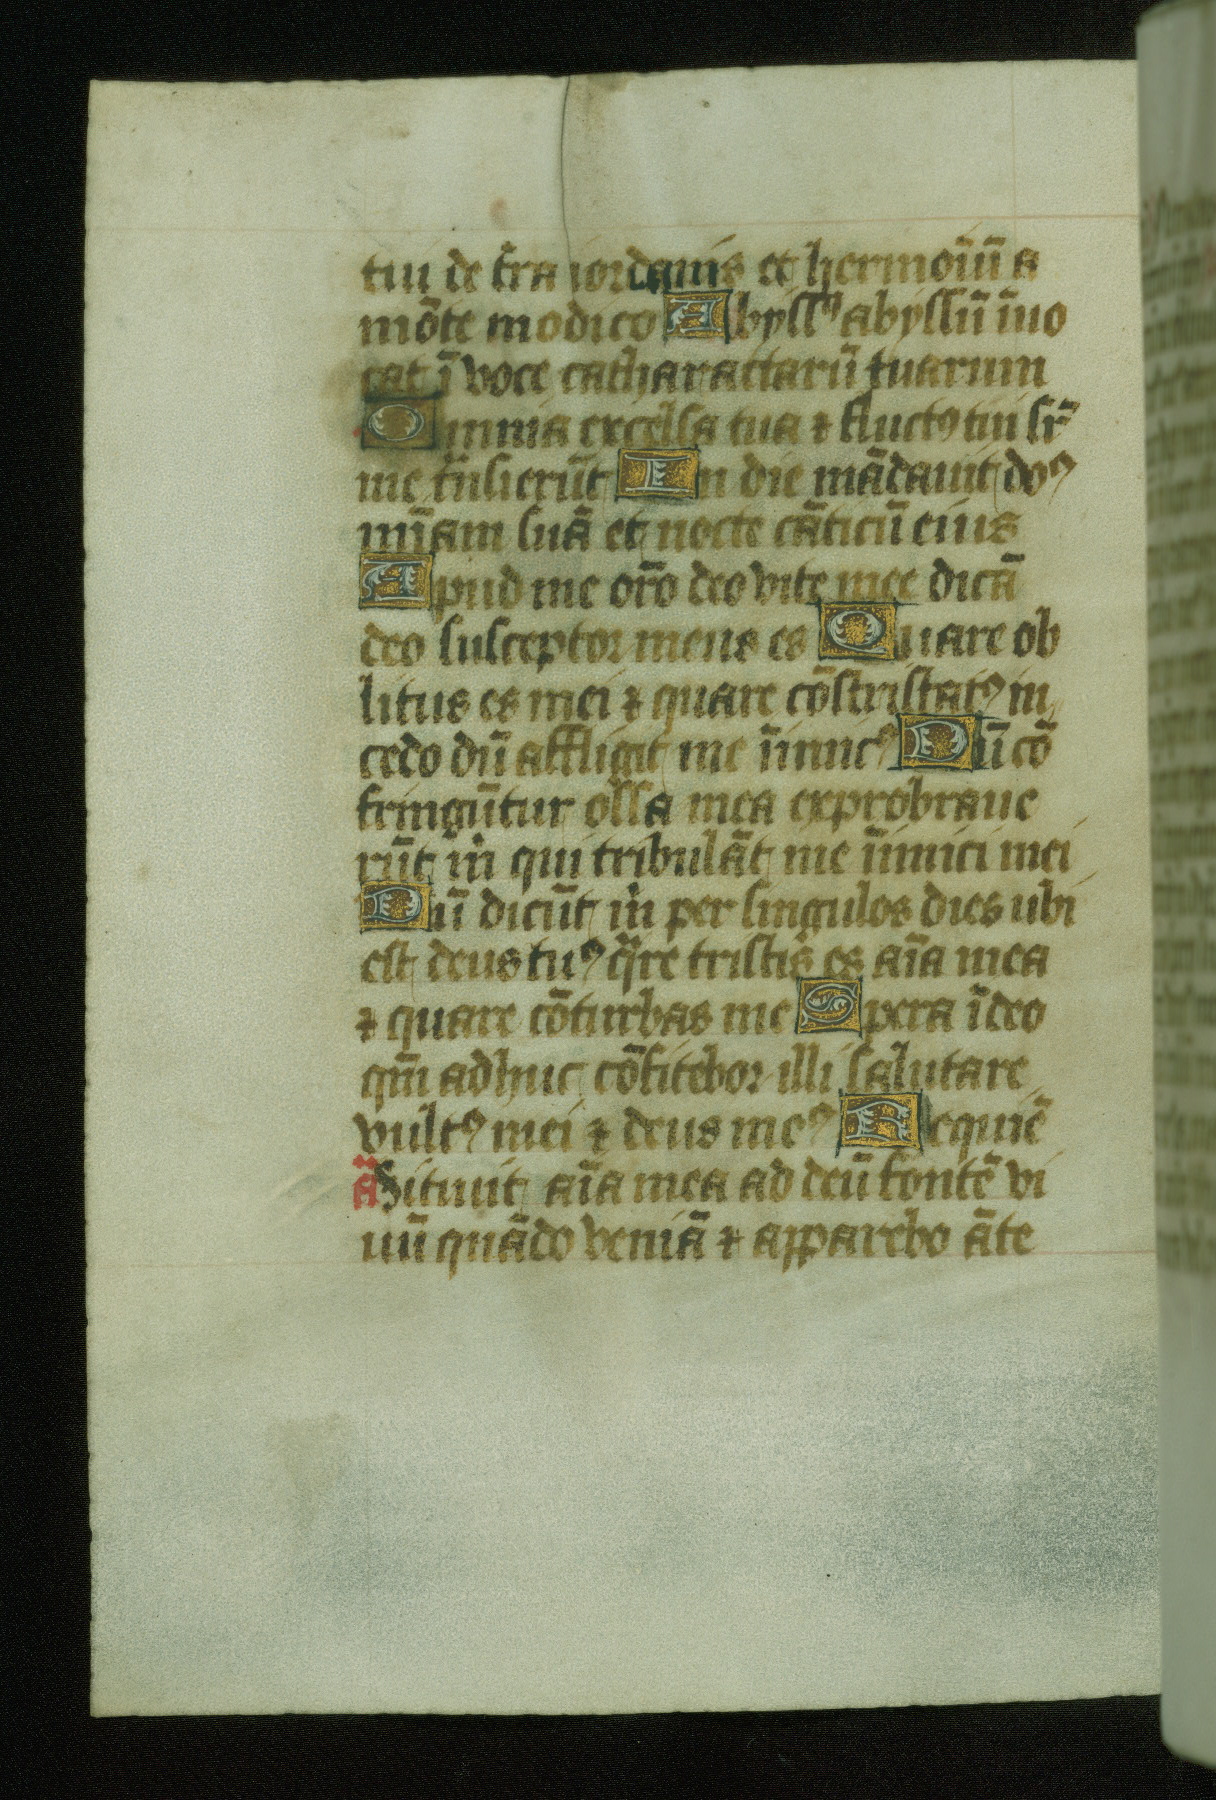 tui de t̄ra iordanis et hermoniū a
mōte modico Abyssꝰ abyssū īuo
cat ī voce catharactarū tuarum
Omnia excelsa tua ⁊ fluctꝰ tui sr̄
me trāsierūt In die mādauit doꝰ
mīam suā et nocte cāticū eius
Apud me or̄o deo vite mee dicā
deo susceptor meus es Quare ob
litus es mei ⁊ quare cōstristatꝰ in
cedo dū affligit me īimicꝰ Dū cō
fringūtur ossa mea exprobraue
rūt m̍ qui tribulāt me īimici mei
Dū dicūt m̍ per singulos dies ubi
est deus tuꝰ q̄re tristis es aīa mea
⁊ quare cōturbas me Spera ī deo
qm̄ adhuc cōfitebor illi salutare
vultꝰ mei ⁊ deus meꝰ Requiē
ā Sitiuit aīa mea ad deū fontē vi
uū quādo veniā ⁊ apparebo āte